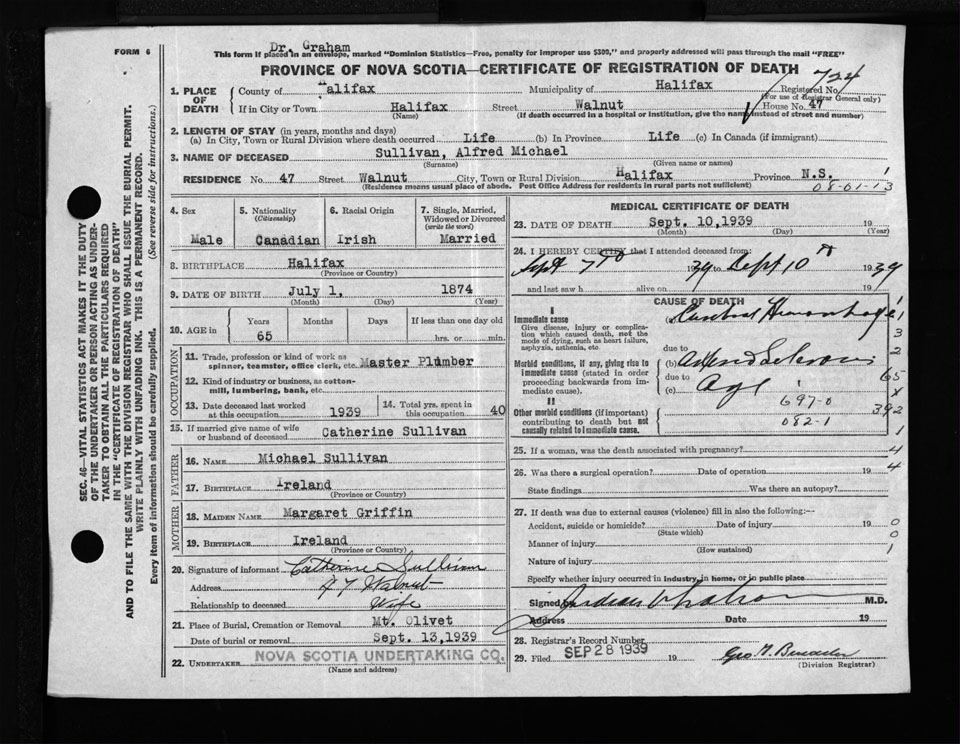 FORM 6
Dr. Graham
This form if placed in an envelope, marked "Dominion Statistics—Free, penalty for improper use $300," and properly addressed will pass through the mail "FREE"
PROVINCE OF NOVA SCOTIA—CERTIFICATE OF REGISTRATION OF DEATH
724
1. PLACE OF DEATH
County of Halifax Municipality of Halifax Registered No.
(For use of Registrar General only)
If in City or Town Halifax Street Walnut House No. 47
(Name) (If death occurred in a hospital or institution, give the name instead of street and number)
2. LENGTH OF STAY (in years, months and days)
(a) In City, Town or Rural Division where death occurred Life (b) In Province Life (c) In Canada (if immigrant)
3. NAME OF DECEASED Sullivan, Alfred Michael
(Surname) (Given name or names)
RESIDENCE No. 47 Street Walnut City, Town or Rural Division Halifax Province N.S.
(Residence means usual place of abode. Post Office Address for residents in rural parts not sufficient)
08-01-13
4. Sex Male
5. Nationality (Citizenship) Canadian
6. Racial Origin Irish
7. Single, Married, Widowed or Divorced (write the word) Married
8. BIRTHPLACE Halifax
(Province or Country)
9. DATE OF BIRTH July 1, 1874
(Month) (Day) (Year)
10. AGE in Years Months Days If less than one day old
65 hrs. or min.
OCCUPATION
11. Trade, profession or kind of work as spinner, teamster, office clerk, etc. Master Plumber
12. Kind of industry or business, as cotton-mill, lumbering, bank, etc.
13. Date deceased last worked at this occupation 1939
14. Total yrs. spent in this occupation 40
15. If married give name of wife or husband of deceased Catherine Sullivan
FATHER
16. NAME Michael Sullivan
17. BIRTHPLACE Ireland
(Province or Country)
MOTHER
18. MAIDEN NAME Margaret Griffin
19. BIRTHPLACE Ireland
(Province or Country)
20. Signature of informant Catherine Sullivan
Address 47 Walnut
Relationship to deceased Wife
21. Place of Burial, Cremation or Removal Mt. Olivet
Date of burial or removal Sept. 13, 1939
22. UNDERTAKER NOVA SCOTIA UNDERTAKING CO.
(Name and address)
MEDICAL CERTIFICATE OF DEATH
23. DATE OF DEATH Sept. 10, 1939 19
(Month) (Day) (Year)
24. I HEREBY CERTIFY that I attended deceased from:
Sept 7th 1939 Sept 10th 1939
and last saw h alive on 19
CAUSE OF DEATH
I
Immediate cause
Give disease, injury or complication which caused death, not the mode of dying, such as heart failure, asphyxia, asthenia, etc.
Hemorrhage
due to
Morbid conditions, if any, giving rise to immediate cause (stated in order proceeding backwards from immediate cause).
(b)
due to
(c) Age
II
Other morbid conditions (if important) contributing to death but not causally related to immediate cause.
697-0
082-1
1
3
2
65
X
392
1
4
4
0
0
1
25. If a woman, was the death associated with pregnancy?
26. Was there a surgical operation? Date of operation 19
State findings Was there an autopsy?
27. If death was due to external causes (violence) fill in also the following:—
Accident, suicide or homicide? Date of injury 19
(State which)
Manner of injury
(How sustained)
Nature of injury
Specify whether injury occurred in industry, in home, or in public place
Signed M.D.
Address Date 19
28. Registrar's Record Number
29. Filed SEP 28 1939 19 Geo
(Division Registrar)
SEC. 46—VITAL STATISTICS ACT MAKES IT THE DUTY
OF THE UNDERTAKER OR PERSON ACTING AS UNDER-
TAKER TO OBTAIN ALL THE PARTICULARS REQUIRED
IN THE "CERTIFICATE OF REGISTRATION OF DEATH"
AND TO FILE THE SAME WITH THE DIVISION REGISTRAR WHO SHALL ISSUE THE BURIAL PERMIT.
WRITE PLAINLY WITH UNFADING INK. THIS IS A PERMANENT RECORD.
Every item of information should be carefully supplied. (See reverse side for instructions.)